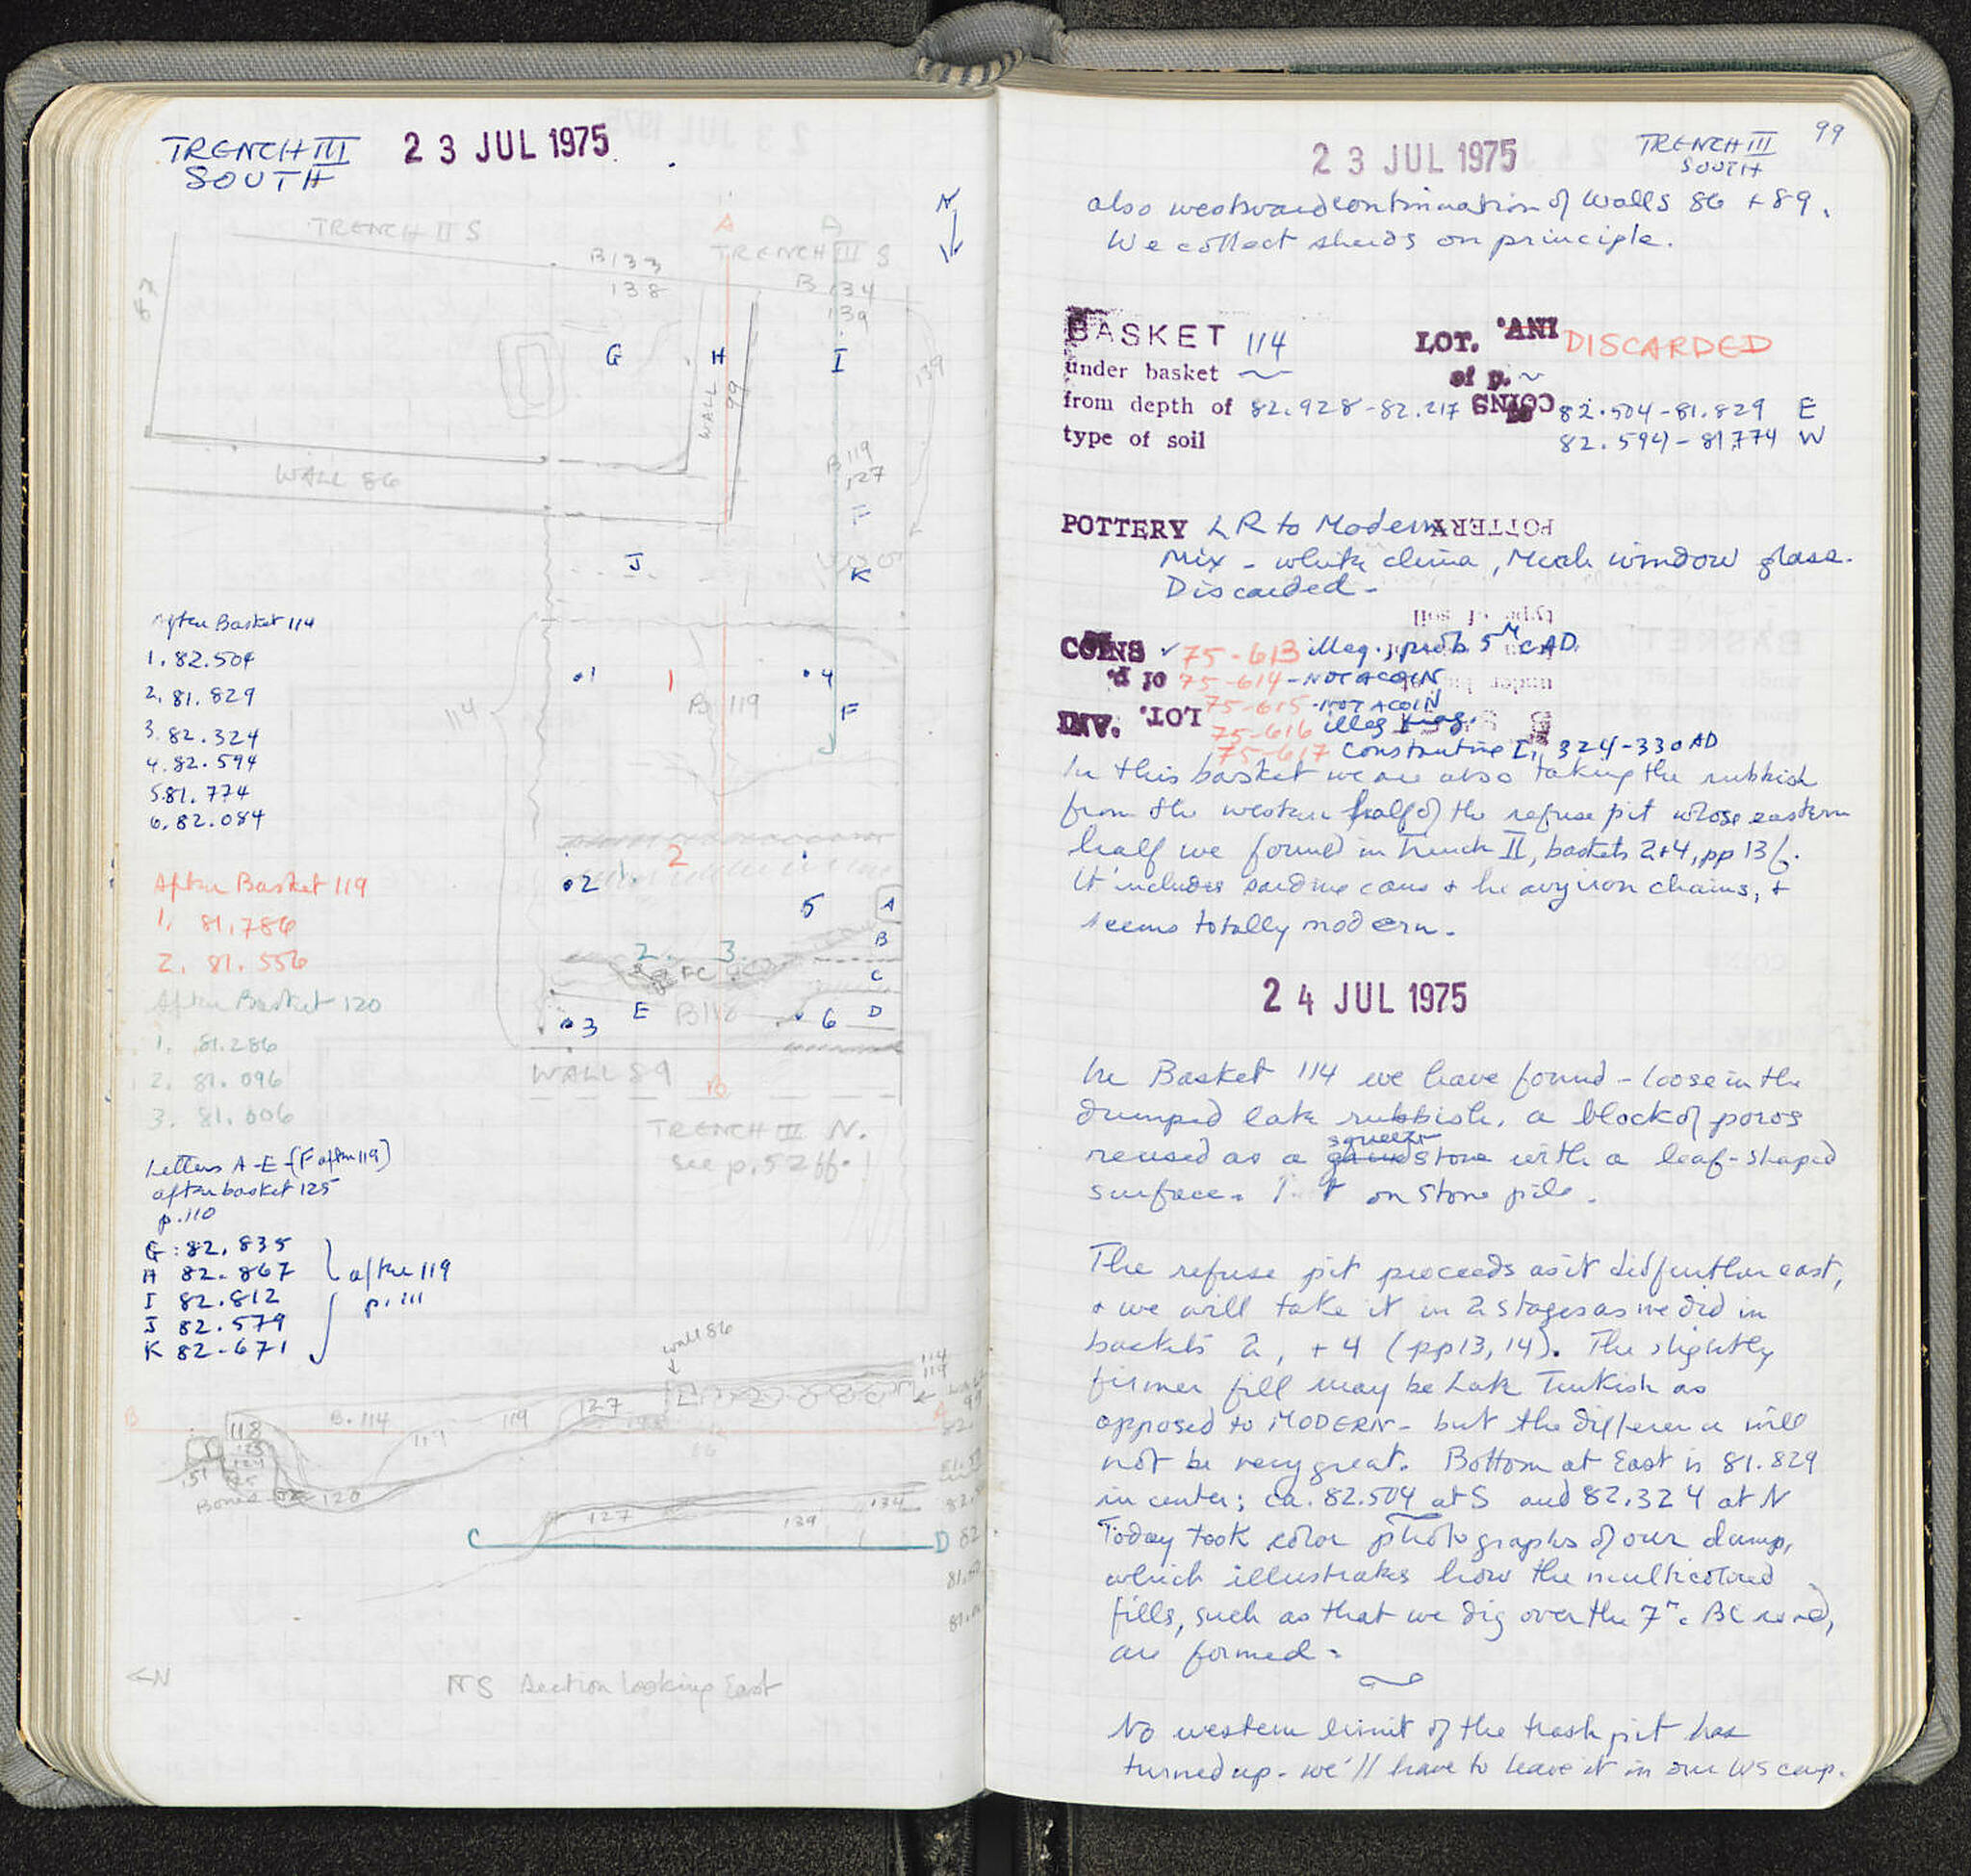 TRENCH III
SOUTH
23 JUL 1975
N
TRENCH II S
A
A
TRENCH III S
B 133
138
B 134
139
87
G
H
I
139
WALL 99
WALL 86
B 119
127
F
J
K
After Basket 114
1. 82.504
2. 81.829
3. 82.324
4. 82.594
5 81.774
6. 82.084
114
1
1
4
B 119
F
After Basket 119
1. 81.786
2. 81.556
After Basket 120
1. 81.286
2. 81.096
3. 81.006
2
1.
2
5
A
B
2.
3.
FC
C
E
B118
D
3
6
WALL 89
B
TRENCH III N.
see p. 52 ff.
Letters A-E-(F after 119)
after basket 125
p. 110
G : 82.835
H 82.867
I 82.812
J 82.579
K 82.671
after 119
p. 111
wall 86
114
119
B
118
B. 114
119
127
119
A
125
Bones
120
127
139
134
C
D
<N
NS Section Looking East
99
23 JUL 1975
TRENCH III
SOUTH
also westward continuation of Walls 86 + 89.
We collect sherds on principle.
BASKET 114
LOT. INV. DISCARDED
under basket ~
of p. ~
from depth of 82.928-82.217 COINS 82.504-81.829 E
type of soil 82.594-81.774 W
POTTERY LR to Modern POTTERY
Mix - white china, much window glass.
Discarded -
type of soil
COINS ✓ 75-613 illeg.; prob. 5th c AD.
of p. 75-614-NOT A COIN
75-615-NOT A COIN
INV. LOT. 75-616 illeg frag.
75-617 Constantine I, 324-330 AD
In this basket we are also taking the rubbish
from the western half of the refuse pit whose eastern
half we found in Trench II, baskets 2+4, pp 13f.
It includes sardine cans + heavy iron chains, +
seems totally modern.
24 JUL 1975
In Basket 114 we have found - loose in the
dumped late rubbish, a block of poros
squeeze
reused as a stone with a leaf-shaped
surface. on stone pile.
The refuse pit proceeds as it did further east,
+ we will take it in 2 stages as we did in
baskets 2, + 4 (pp 13, 14). The slightly
firmer fill may be Late Turkish as
opposed to MODERN - but the difference will
not be very great. Bottom at East is 81.829
in center; ca. 82.504 at S and 82.324 at N
Today took color photographs of our dump,
which illustrates how the multicolored
fills, such as that we dig over the 7th c. BC road,
are formed.
No western limit of the trash pit has
turned up - we'll have to leave it in our WS carp.